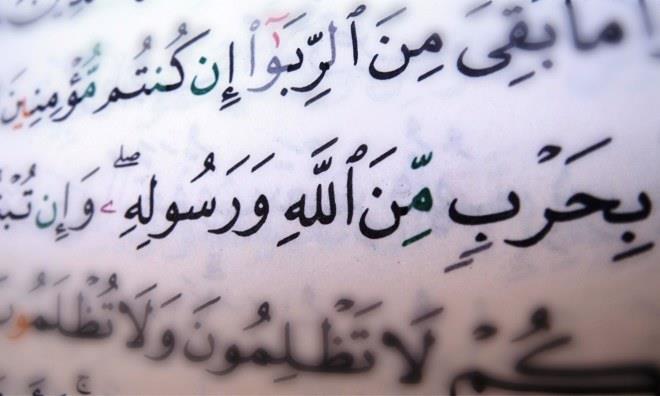 مَا بَقِىَ مِنَ ٱلرِّبَوٰٓا۟ إِن كُنتُم مُّؤْمِنِينَ
بِحَرْبٍ مِّنَ ٱللَّهِ وَرَسُولِهِۦ ۖ وَإِن تُبْتُ
كُمْ لَا تَظْلِمُونَ وَلَا تُظْلَمُونَ